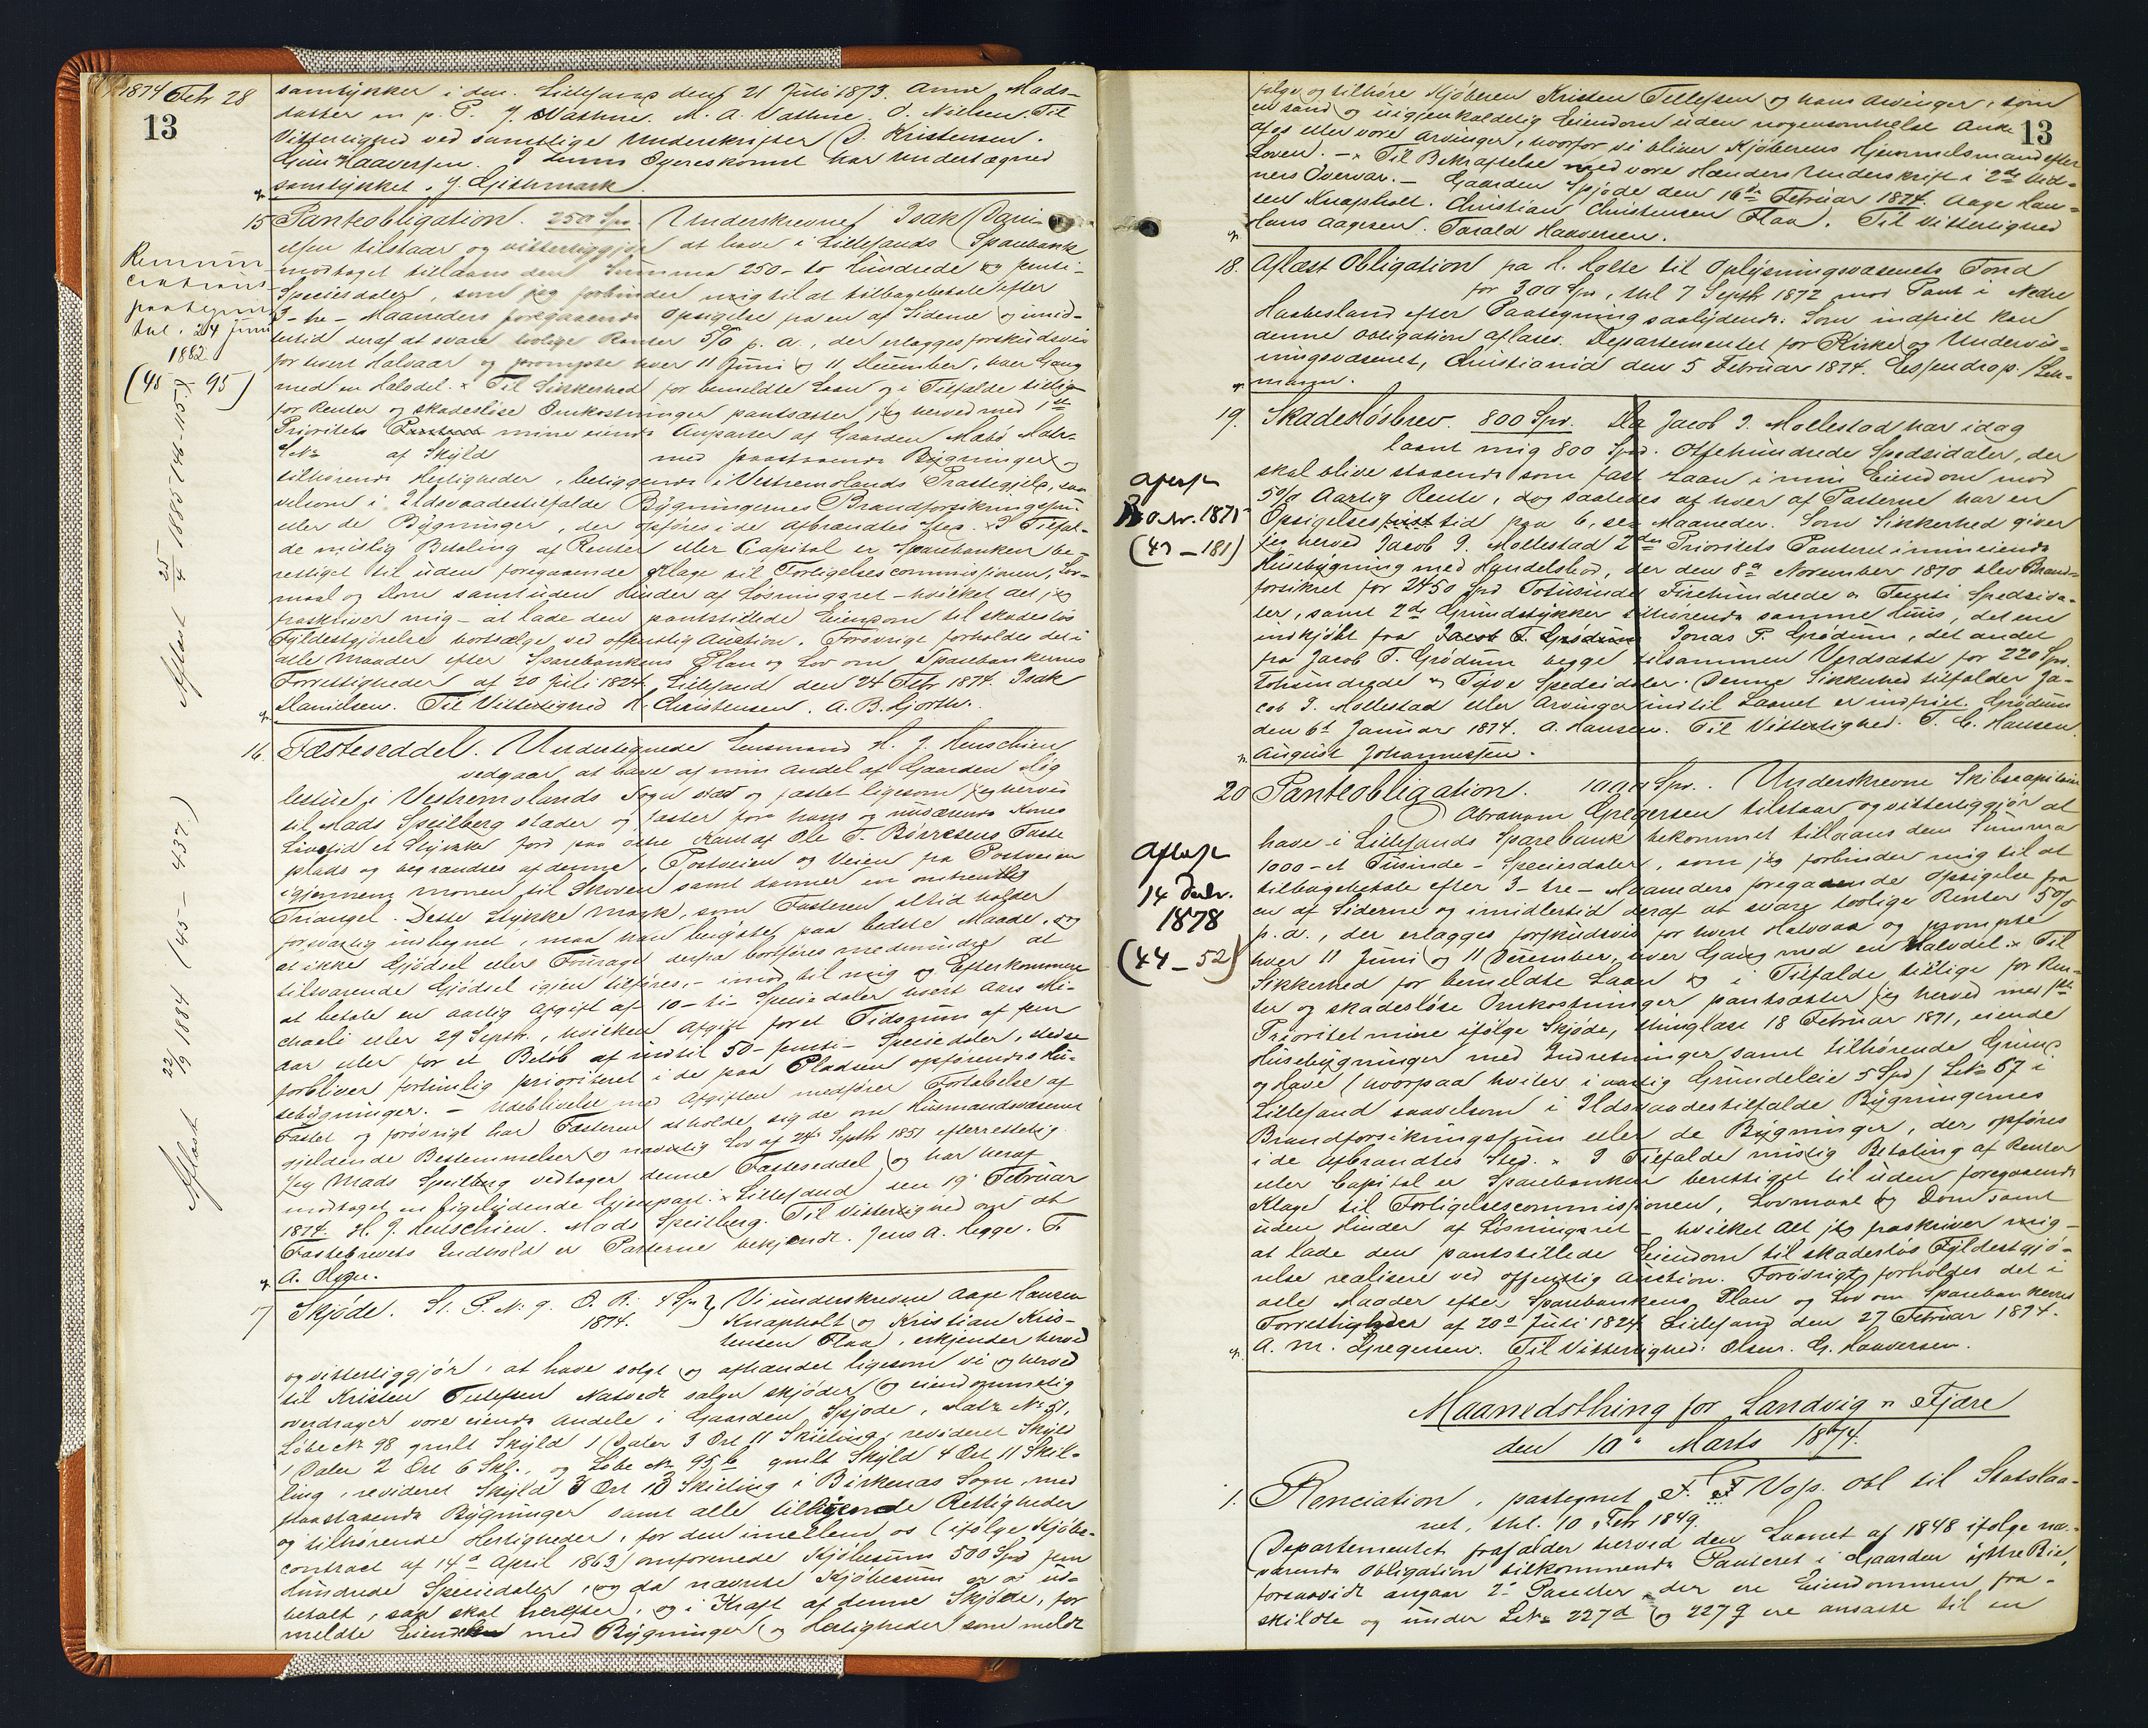 1874 Febr 28
13
samtykker i den. Lillesand den 21 Juli 1873. Anne Mads-
datter m. p. P. J. Vathne. M. A. Vathne. O. Nielsen. Til
Vitterlighed ved samtlige Underskrifter O. Kristensen.
Haaversen. I denne Overeskomst har undertegned
samtykket. J. Githmark.
15 Panteobligation. 250 Spd. Underskrevne Isak Dani-
elsen tilstaar og vitterliggjør at have i Lillesands Sparebank
modtaget tillaans den Summa 250 - to hundrede og femti -
Speciesdaler, som jeg forbinder mig til at tilbagebetale efter
3 - tre - Maaneders foregaaende Opsigelse fra en af Siderne og imid-
lertid deraf at svare lovlige Renter 5% p. a., der erlægges forskudsvis
for hvert Halvaar og prompte hver 11 Juni og 11 December, hver Gang
med en Halvdel. Til Sikkerhed for bemeldte Laan og i Tilfælde tillige
for Renter og skadesløse Omkostninger pantsætter jeg herved med 1ste
Prioritets mine eiende Anparter af Gaarden Matr.
af Skyld med paastaaende Bygninger og
tilhørende Herligheder, beliggende i Vestremolands Præstegjeld, saa-
velsom i Ildsvaadestilfælde Bygningernes Brandforsikringssum
eller de Bygninger, der opføres i de afbrændtes Sted. I Tilfæl-
de mislig Betaling af Renter eller Capital er Sparebanken be-
rettiget til uden foregaaende Klage til Forligelsescommissionen, Lov-
maal og Dom samt uden Hinder af Løsningsret - hvilket alt jeg
fraskriver mig - at lade den pantstillede Eiendom til skadesløs
Fyldestgjørelse bortsælge ved offentlig Auction. Forøvrigt forholdes det i
alle Maader efter Sparebankens Plan og Lov om Sparebankernes
Forrettigheder af 20 Juli 1824. Lillesand den 24 Febr 1874. Isak
Danielsen. Til Vitterlighed H. Christensen. A. B. Hjorth.
paategn
24 Juni
1882
(45 - 95)
Aflæst 25/4 1885
16. Fæsteseddel. Undertegnede Lensmand H. J. Henschien
vedgaar at have af min Andel af Gaarden Møg
lestue i Vestremolands Sogn sted og fæstet ligesom jeg herved
til Mads Speilberg stæder og fæster for hans og nuværende Kones
Livstid et Stykke Jord paa østre Kant af Ole T. Børresens Fæste
plads og begrændses af denne, Postveien og Veien fra Postveien
igjennem monen til Skoven samt danner en omtrentlig
Triangel. Dette Stykke Mark, som Fæsteren altid holder
forsvarlig indhegnet, maa han benytte paa bedste Maade, dog
at ikke Gjødsel eller Fourage derfra bortføres medmindre at
tilsvarende Gjødsel igjen tilføres, - imod til mig og Efterkommere
at betale en aarlig Afgift af 10 - ti - Speciedaler hvert Aars Mi-
chaeli eller 29 Septbr, hvilken Afgift for et Tidsrum af fem
Aar eller for et Beløb af indtil 50 - femti - Speciedaler, stedse
forbliver fortrinlig prioriteret i de paa Pladsen opførendes Hu-
sebygninger. - Udeblivelse med Afgiften medfører Fortabelse af
Fæstet og forøvrigt har Fæsteren at holde sig de om Husmandsvæsenet
gjeldende Bestemmelser og navnlig Lov af 24de Septbr 1851 efterrettelig.
Jeg Mads Speilberg vedtager denne Fæsteseddel og har heraf
modtaget en ligelydende Gjenpart. Lillesand den 19 Februar
1874. H. J. Henschien. Mads Speilberg. Til Vitterlighed og at
Fæstebrevets Indhold er Parterne bekjendt. Jens A. Hegge. F.
A. Olsen.
Aflæst 22/9 1884 (45 - 437)
7 Skjøde. St. P. N. 9. O. R. 4 Sp. Vi underskrevne Aage Hansen
1874. Knapholt og Kristian Kris-
tensen Flaa, erkjender herved
og vitterliggjør, at have solgt og afhændet ligesom vi og herved
til Kristen Tellefsen Natvedt sælger skjøder og eiendommelig
overdrager vore eiende Andele i Gaarden Spjøde, Matr. No 51,
Løbe No 98 gmlt Skyld 1 Daler 3 Ort 11 Skilling, revideret Skyld
1 Daler 2 Ort 6 Skl., og Løbe No 95b gmlt Skyld 4 Ort 11 Skil-
ling, revideret Skyld 3 Ort 13 Skilling i Birkenæs Sogn, med
paastaaende Bygninger samt alle tilhørende Rettigheder
og tilhørende Herligheder, for den imellem os (ifølge Kjøbe-
contract af 14de April 1863) omforenede Kjøbesum 500 Spd fem
Hundrede Speciedaler, og da nævnte Kjøbesum er os ud-
betalt, saa skal herefter, og i Kraft af denne Skjøde, for
meldte Eiendom med Bygninger og Herligheder som meldt
13
følge og tilhøre Kjøberen Kristen Tellefsen og hans Arvinger, som
en sand og uigjenkaldelig Eiendom uden nogensomhelst Anke
af os eller vore Arvinger, hvorfor vi bliver Kjøberens Hjemmelsmænd efter
Loven. - Til Bekræftelse med vore Hænders Underskrift i 2de Vid-
ners Overvær. - Gaarden Spjøde den 16de Februar 1874. Aage Han-
sen Knapholt. Christian Christensen Flaa. Til Vitterlighed
Hans Aagesen. Tarald Haaversen.
18. Aflæst Obligation fra H. Holte til Oplysningsvæsenets Fond
for 300 Spd, thl 7 Septbr 1872 mod Pant i Nedre
Haabesland efter Paategning saalydende: Som indfriet kan
denne Obligation aflæses. Departementet for Kirke og Undervis-
ningsvæsenet, Christiania den 5 Februar 1874. Essendrop. /
19. Skadesløsbrev. 800 Spd. Da Jacob J. Mollestad har idag
laant mig 800 Spd. Ottehundrede Spedsidaler, der
skal blive staaende som fast Laan i min Eiendom mod
5% Aarlig Rente, dog saaledes at hver af Parterne har en
Opsigelsestid paa 6, sex Maaneder. Som Sikkerhed giver
jeg herved Jacob J. Mollestad 2den Prioritets Panteret i min eiende
Husebygning med Handelsbod, der den 8de November 1870 blev Brand-
forsikret for 2450 Spd Totusinde Firehundrede og Femti Spedsida-
ler, samt 2de Grundstykker tilhørende samme Huus, det ene
indkjøbt fra Jacob T. Grødum Jonas T. Grødum, det andet
fra Jacob T. Grødum begge tilsammen Værdsatte for 220 Spd.
tohundrede og Tyve Spedsidaler. Denne Sikkerhed tilfalder Ja-
cob J. Mollestad eller Arvinger indtil Laanet er indfriet. Grødum
den 6te Januar 1874. A. Hansen. Til Vitterlighed. T. C. Hansen.
August Johannessen.
1875
(43 - 181)
20 Panteobligation. 1000 Spd. Underskrevne Skibscapitain
Abraham Gregersen tilstaar og vitterliggjør at
have i Lillesands Sparebank bekommet tillaans den Summa
1000 - et Tusinde - Speciesdaler, som jeg forbinder mig til at
tilbagebetale efter 3 - tre - Maaneders foregaaende Opsigelse fra
en af Siderne og imidlertid deraf at svare lovlige Renter 5%
p. a., der erlægges forskudsvis for hvert Halvaar og prompte
hver 11 Juni og 11 December, hver Gang med en Halvdel. Til
Sikkerhed for bemeldte Laan og i Tilfælde tillige for Ren-
ter og skadesløse Omkostninger pantsætter jeg herved med 1ste
Prioritet mine ifølge Skjøde, thinglæst 18 Februar 1871, eiende
Husebygninger med Indretninger samt tilhørende Grund
og Have (hvorpaa hviler i aarlig Grundeleie 5 Spd) LNo 87 i
Lillesand saavelsom i Ildsvaadestilfælde Bygningernes
Brandforsikringssum eller de Bygninger, der opføres
i de afbrændtes Sted. I Tilfælde mislig Betaling af Renter
eller Capital er Sparebanken berettiget til uden foregaaende
Klage til Forligelsescommissionen, Lovmaal og Dom samt
uden Hinder af Løsningsret - hvilket Alt jeg fraskriver mig -
at lade den pantstillede Eiendom til skadesløs Fyldestgjø-
relse realisere ved offentlig Auction. Forøvrigt forholdes det i
alle Maader efter Sparebankens Plan og Lov om Sparebankernes
Forrettigheder af 20de Juli 1824. Lillesand den 27 Februar 1874.
A. M. Gregersen. Til Vitterlighed: Olsen. G. Haaversen.
Aflæst
14
1878
(44 - 52)
Maanedsthing for Landvig og Fjære
den 10de Marts 1874.
1. Renciation, paategnet Obl til Statslaa-
net, thl. 10 Febr 1849.
Departementet frafalder herved den Laanet af 1848 ifølge næ-
værende Obligation tilkommende Panteret i Gaarden østre Bie,
forsaavidt angaar 2de Parceller der ere Eiendommen fra-
skildte og under LNo 227d og 227g ere ansatte til en